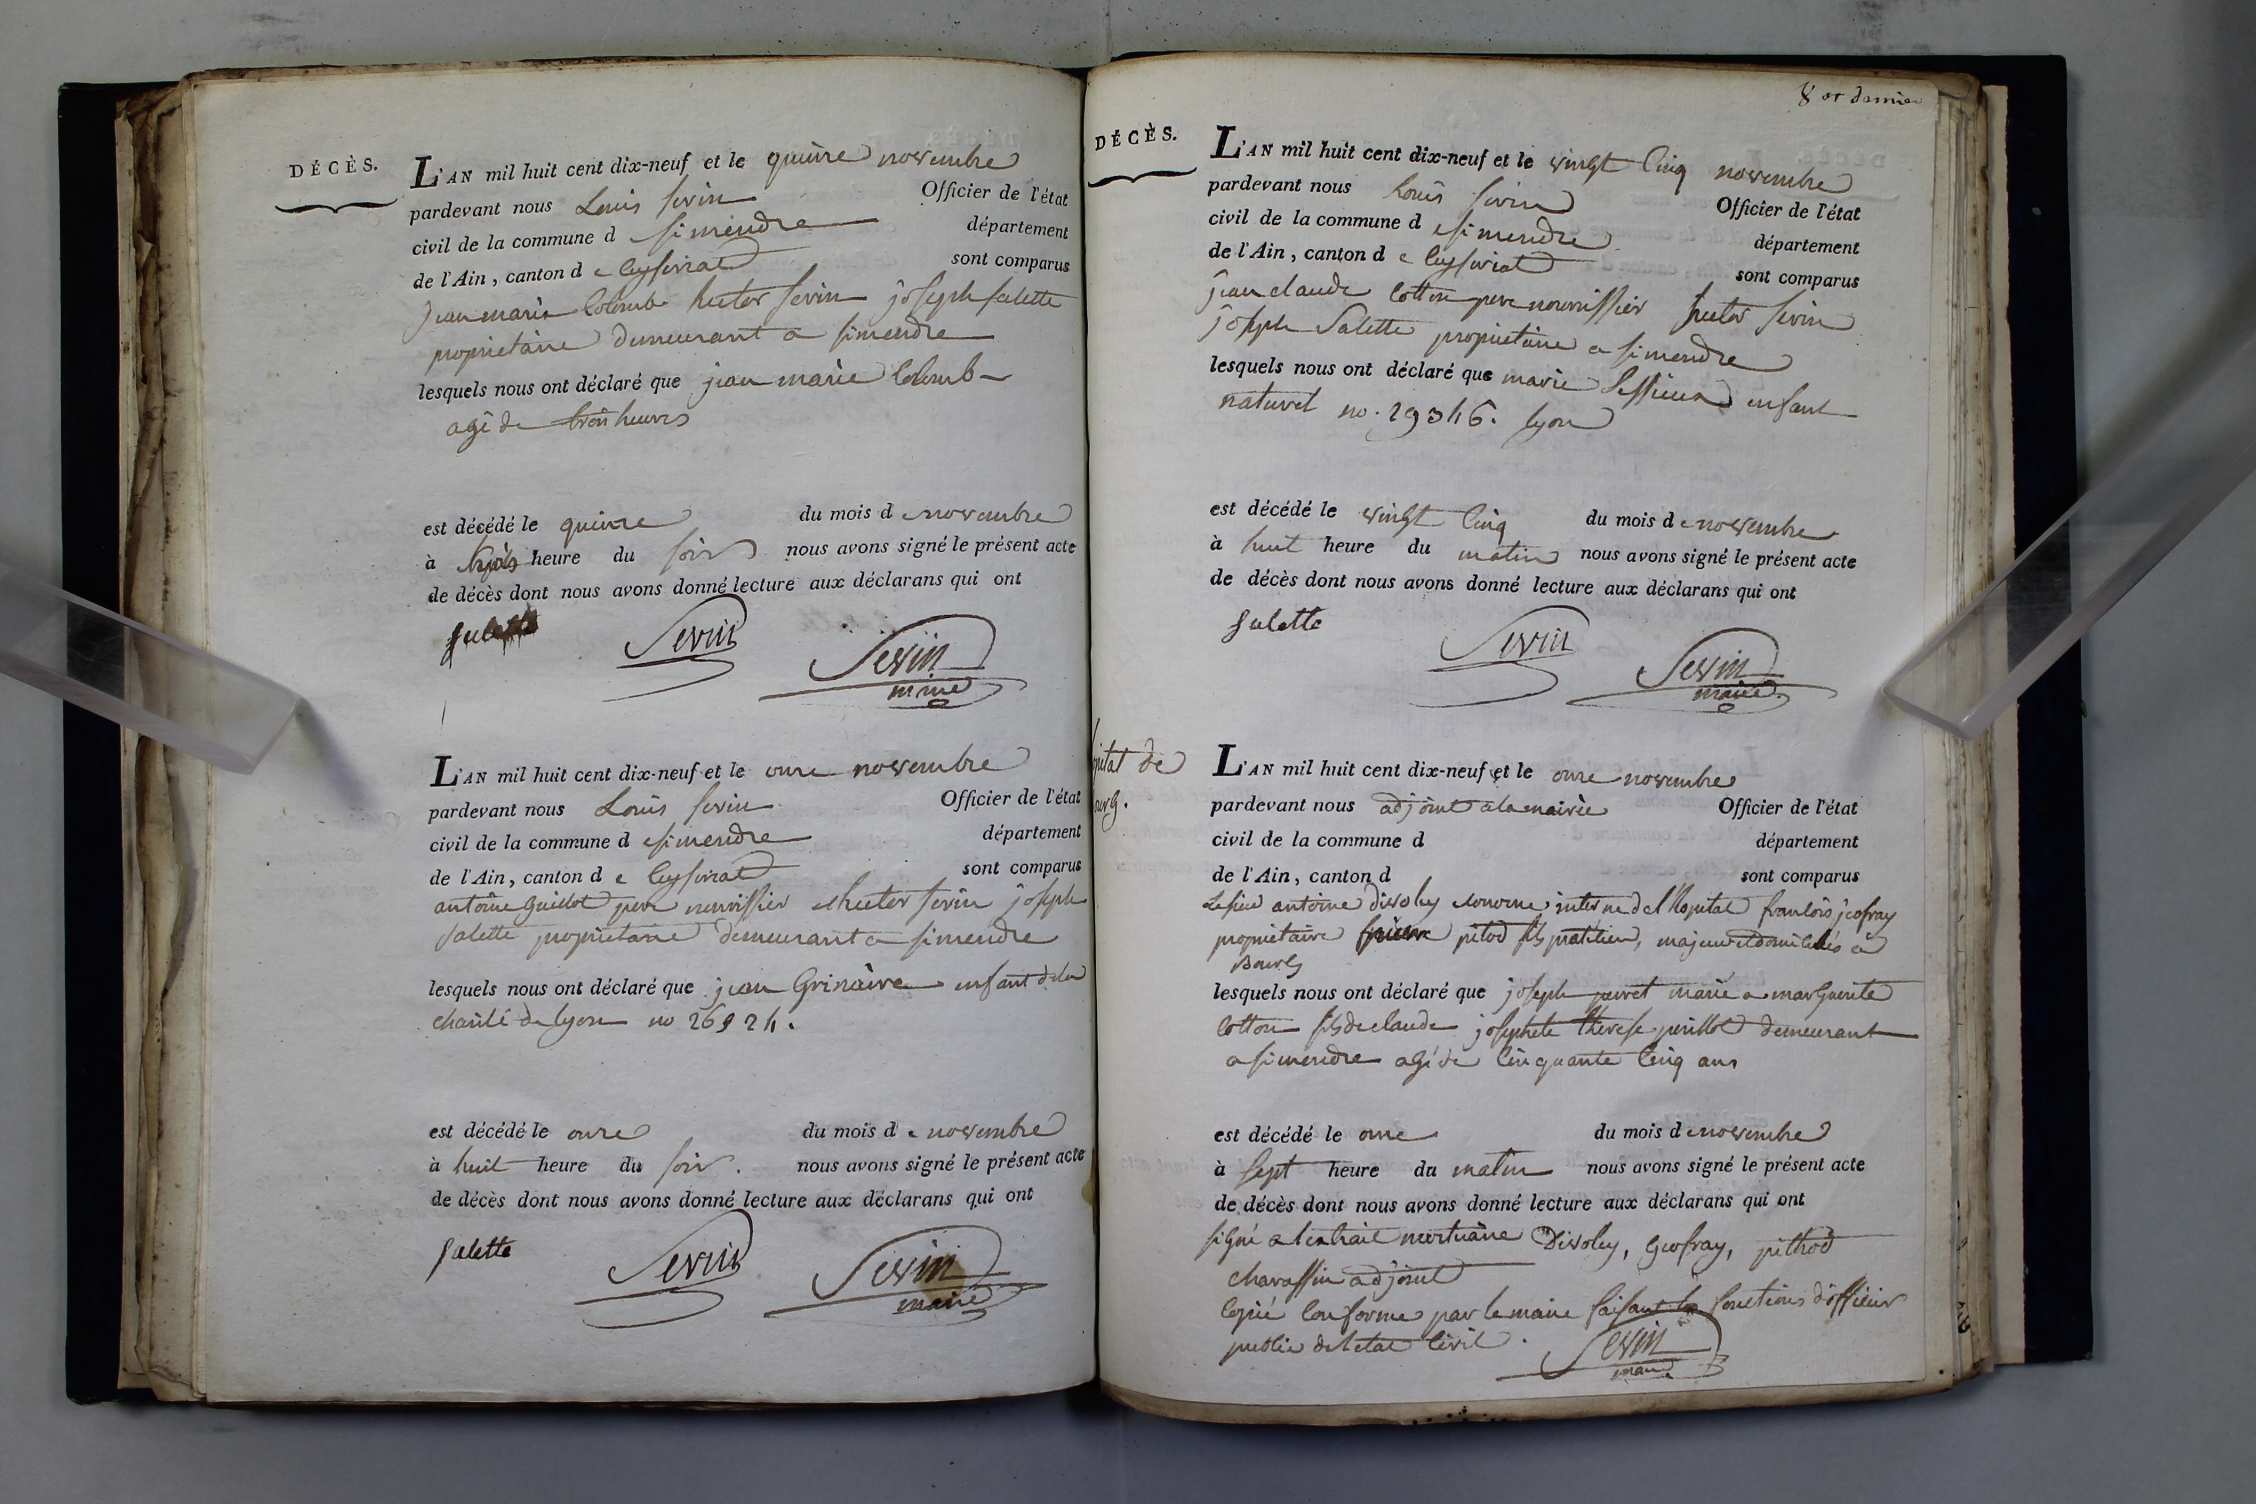 DÉCÈS.
L'AN mil huit cent dix-neuf et le quinze novembre
pardevant nous Louis sevin Officier de l'état
civil de la commune d simendre département
de l'Ain, canton d e Ceyseriat sont comparus
jean marie Colomb hector sevin joseph salette
proprietaire demeurant a simendre
lesquels nous ont déclaré que jean marie Colomb
agé de trois heures
est décédé le quinze du mois d e novembre
à trois heure du soir nous avons signé le présent acte
de décès dont nous avons donné lecture aux déclarans qui ont
salette Sevin Sevin
maire
L'AN mil huit cent dix-neuf et le onze novembre
pardevant nous Louis sevin Officier de l'état
civil de la commune d simendre département
de l'Ain, canton d e Ceyseriat sont comparus
antoine Guillot pere nourrissier hector sevin joseph
salette proprietaire demeurant a simendre
lesquels nous ont déclaré que jean Grinaire enfant dela
charité de lyon no 26924.
est décédé le onze du mois d e novembre
à huit heure du soir. nous avons signé le présent acte
de décès dont nous avons donné lecture aux déclarans qui ont
salette Sevin Sevin
maire
8 et dernier
DÉCÈS.
L'AN mil huit cent dix-neuf et le vingt cinq novembre
pardevant nous Louis sevin Officier de l'état
civil de la commune d simendre département
de l'Ain, canton d e Ceyseriat sont comparus
jean claude cotton pere nourrissier hector sevin
joseph Salette proprietaire a simendre
lesquels nous ont déclaré que marie enfant
naturel no. 29346. lyon
est décédé le vingt cinq du mois d e novembre
à huit heure du matin nous avons signé le présent acte
de décès dont nous avons donné lecture aux déclarans qui ont
salette Sevin Sevin
maire
pital de
ourg.
L'AN mil huit cent dix-neuf et le onze novembre
pardevant nous adjoint a la mairie Officier de l'état
civil de la commune d département
de l'Ain, canton d sont comparus
Le sieur antoine Divoley econome interne de l'Hopital francois jeofray
proprietaire pierre pitod fils praticien, majeurs domiciliés a
Bourg
lesquels nous ont déclaré que joseph perret marié a marguerite
cotton fils de claude josephete therese perillod demeurant
a simendre agé de cinquante cinq ans
est décédé le onze du mois d e novembre
à sept heure du matin nous avons signé le présent acte
de décès dont nous avons donné lecture aux déclarans qui ont
signé a l'extrait mortuaire Divoley, geofray, pithod
chavassin adjoint
Copié conforme par le maire faisant les fonctions d'officier
public de l'etat civil. Sevin
maire